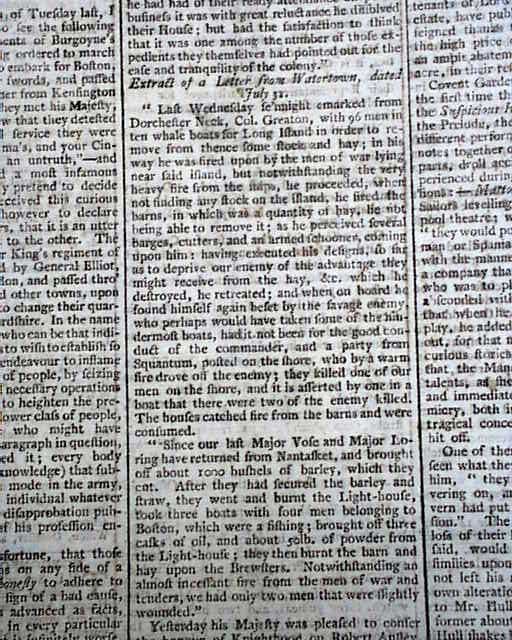 of Tuesday last, I
see the following
ents of Burgoyne's
ordered to march
embark for Boston,
swords, and passed
from Kensington
they met his Majesty,
that they detested
service they were
ma's, and your Cin-
an untruth,"—and
a most infamous
pretend to decide
received this curious
however to declare
that it is an utter
to the other. The
King's regiment of
by General Elliot,
and passed thro'
other towns, upon
change their quar-
rdshire. In the name
who can be that indi-
to wish to establish so
endeavour to inflame
of people, by seizing
necessary operations
to heighten the pre-
lower class of people,
who might have
paragraph in question,
it; every body
knowledge) that sub-
mode in the army,
individual whatever
disapprobation pub-
of his profession en-
sfortune, that those
as on any side of a
honestly to adhere to
sign of a bad cause,
advanced as facts,
in every particular
infinitely worse
he had had of their ready
business it was with great reluctance he dismissed
their House; but had the satisfaction to think
that it was one among the number of those ex-
pedients they themselves had pointed out for the
ease and tranquility of the colony."
Extract of a Letter from Watertown, dated
July 31.
" Last Wednesday se'nnight emarked from
Dorchester Neck, Col. Greaton, with 96 men in
ten whale boats for Long Island in order to re-
move from thence some stock and hay; in his
way he was fired upon by the men of war lying
near said island, but notwithstanding the very
heavy fire from the ships, he proceeded, when
not finding any stock on the island, he fired the
barns, in which was a quantity of hay, he not
being able to remove it; as he perceived several
barges, cutters, and an armed schooner, coming
upon him: having executed his designs, so far
as to deprive our enemy of the advantage they
might receive from the hay, &c. which he
destroyed, he retreated; and when on board he
found himself again beset by the savage enemy,
who perhaps would have taken some of the hin-
dermost boats, had it not been for the good con-
duct of the commander, and a party from
Squantum, posted on the shore, who by a warm
fire drove off the enemy; they killed one of our
men on the shore, and it is asserted by one in a
boat that there were two of the enemy killed.
The houses catched fire from the barns and were
consumed.
" Since our last Major Vose and Major Lo-
ring have returned from Nantasket, and brought
off about 1000 bushels of barley, which they
cut. After they had secured the barley and
straw, they went and burnt the Light-house,
took three boats with four men belonging to
Boston, which were a fishing; brought off three
casks of oil, and about 50lb. of powder from
the Light-house; they then burnt the barn and
hay upon the Brewsters. Notwithstanding an
almost incessant fire from the men of war and
tenders, we had only two men that were slightly
wounded."
Yesterday his Majesty was pleased to confer
the honour of Knighthood on Robert Ainsley
tenants of
estate, have
reigned
the high price
an ampit abatem
acre, in their
Covent Garden
the first time
the Suspicious
the Prelude, the
different perform
notes together
parts, droll acc
perienced during
tions:—
Sailors levelling
pool theatre; w
" they would
man or Spania
with the manne
a company that
who was to
absconded with
that when the
play, he added
out, for that
curious stories
that the Man
talents, as she
and immediate
micry, both in
tragical conce
hit off.
One of them
seen what they
him, " they
vering on, an
vern had put
sion." The
loss of their
said, would
similies upon
not left his
own alteration
to Mr. Hull
former about
Hull shakes